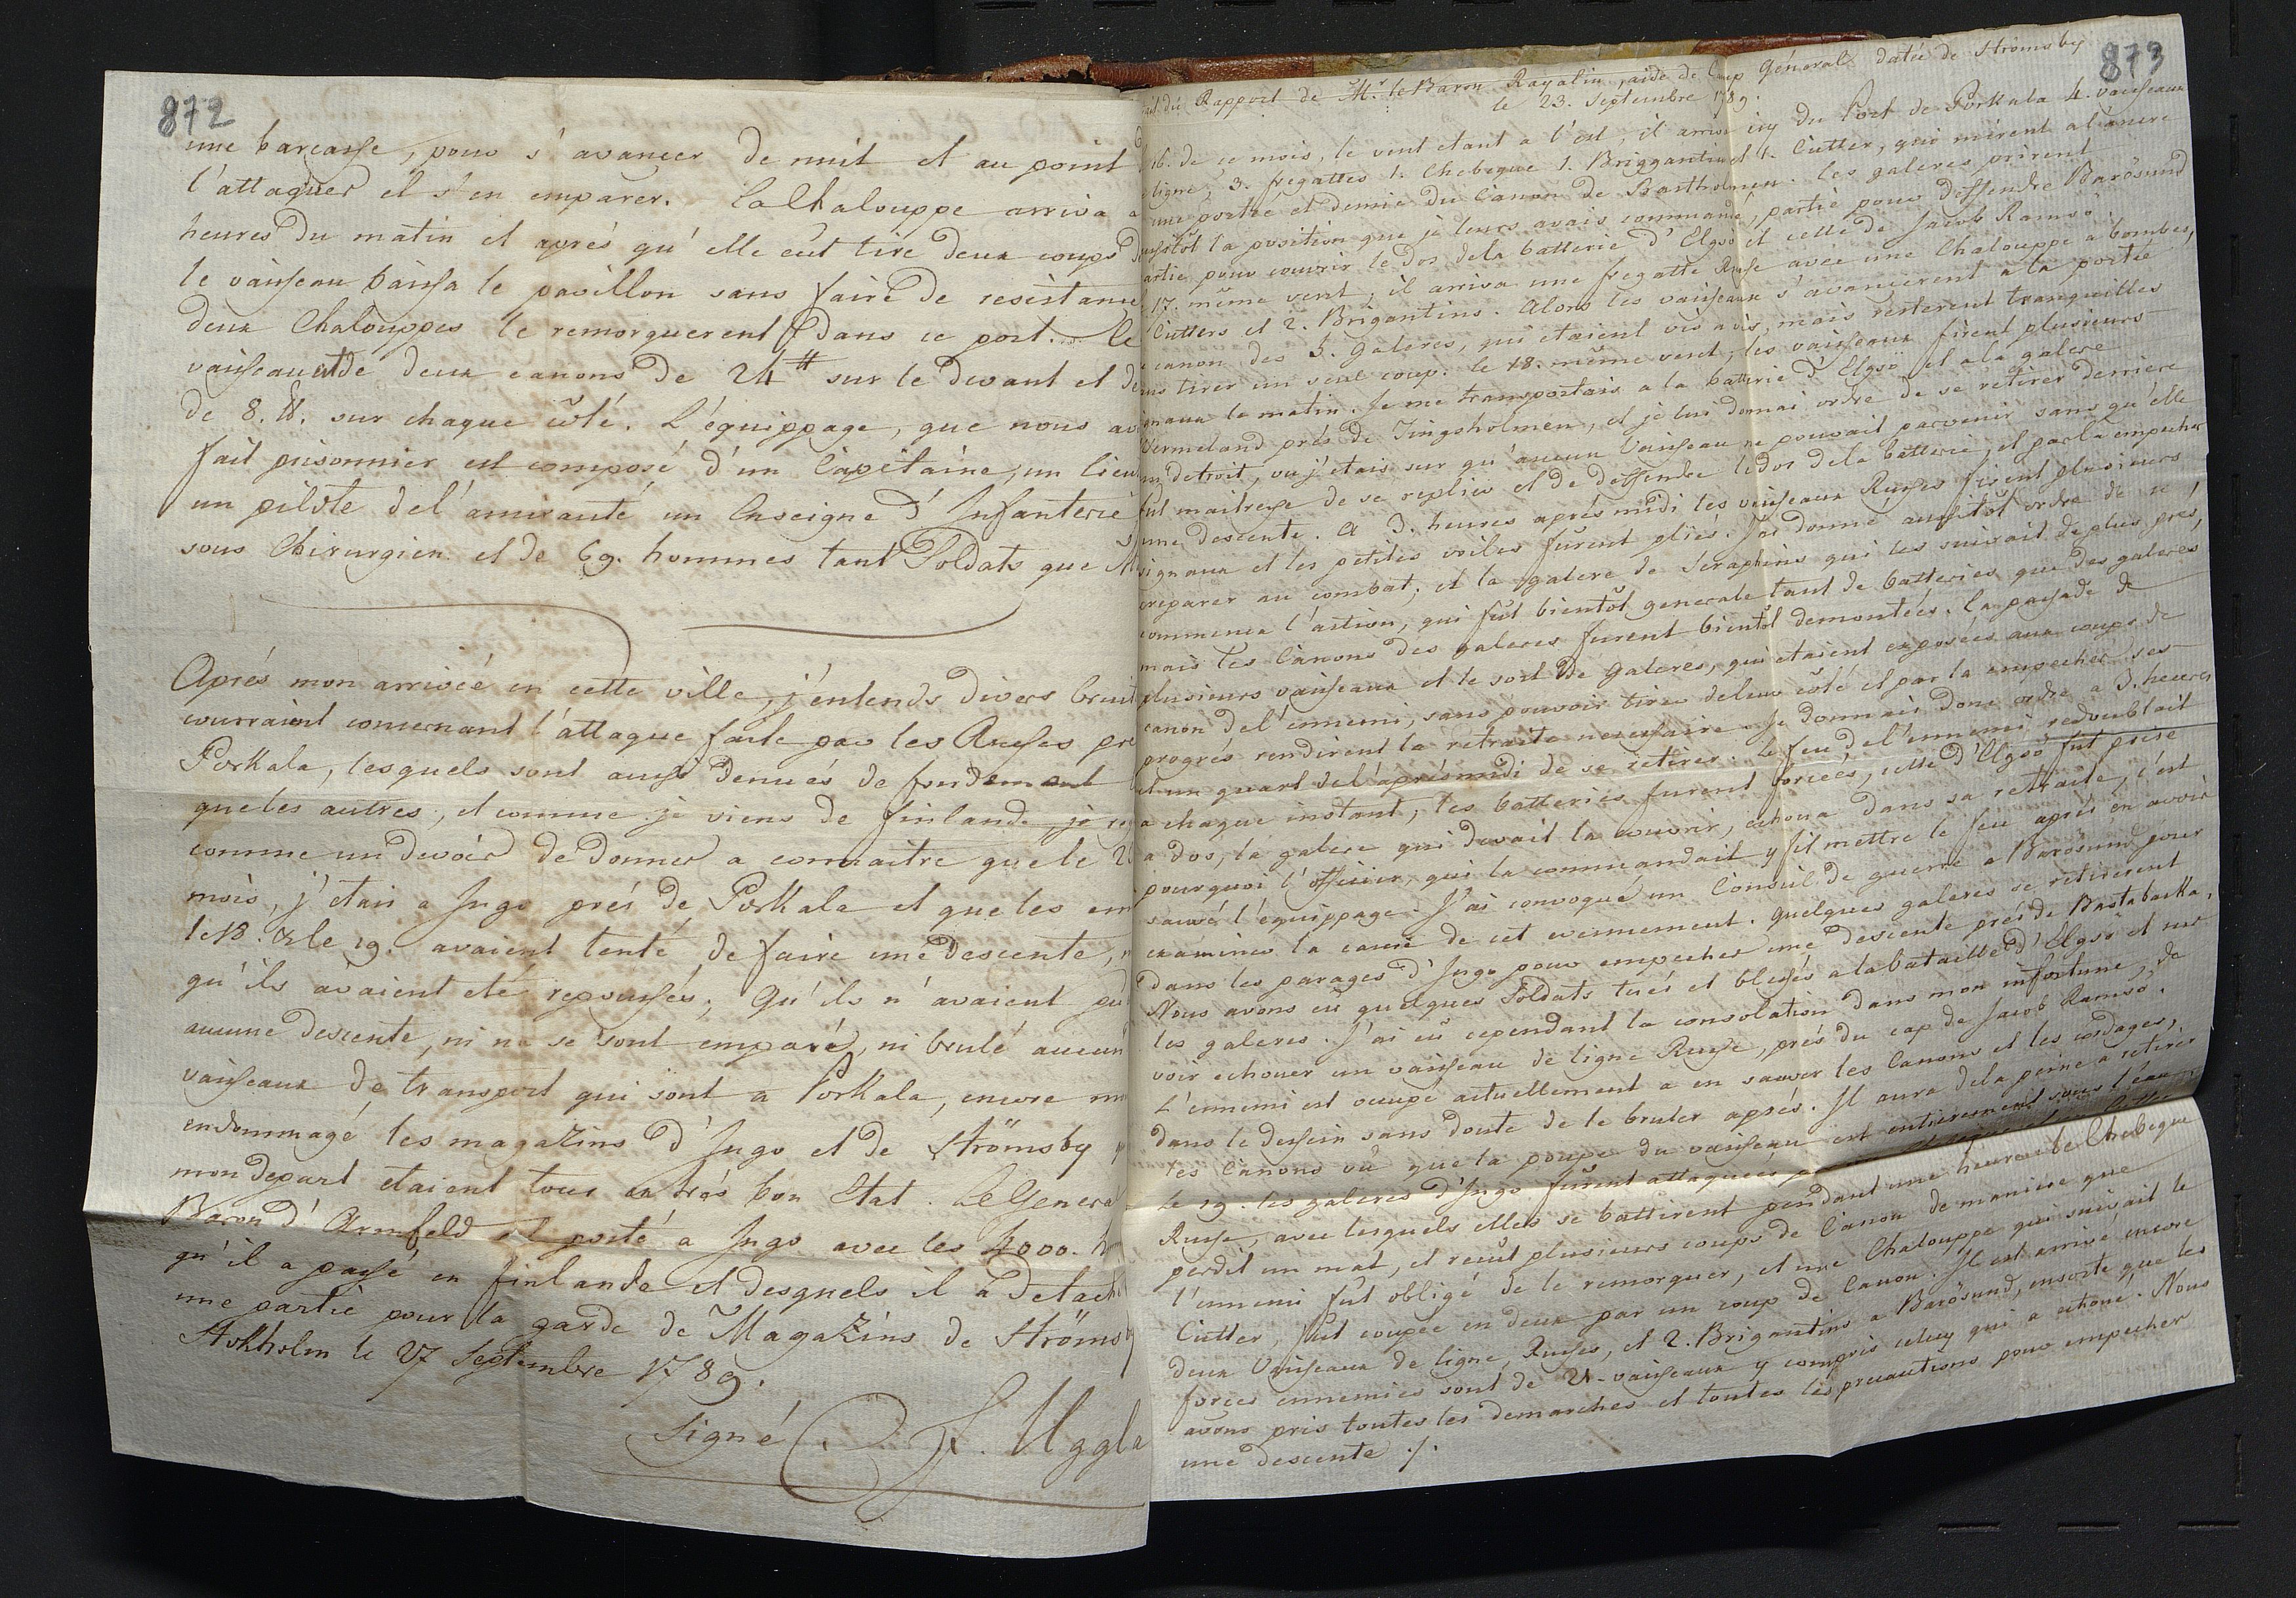 872
une barcasse, pour s'avancer de nuit et au point
l'attaquer et s'en emparer. La Chalouppe arriva a
heures du matin et aprés qu'elle eut tire deux coups de
le vaisseau baissa le pavillon sans faire de resistance
deux Chalouppes le remorquerent dans ce port. Le
vaisseau est de deux canons de 24 ₶ sur le devant et de
de 8. ₶. sur chaque côté. L'équippage, que nous av
fait prisonnier est composé d'un Capitaine, un Lieu
un pilote de l'amirauté un Enseigne d'Infanterie
sous Chirurgien et de 69. hommes tant Soldats que M
Aprés mon arrivée en cette ville, j'entends divers bruit
courraient concernant l'attaque faite par les Russes pre
Porkala, lesquels sont aussi denués de fondement
que les autres; et comme je viens de finlande, je re
comme un devoir de donner a connaitre que le 2
mois, j'etais a Ingo prés de Porkala et que les en
le 18. & le 19. avaient tenté de faire une descente,
qu'ils avaient eté repoussés; Qu'ils n'avaient pu
aucune descente, ni ne se sont emparé, ni brulé aucun
vaisseaux de transport qui sont a Porkala, encore m
endommagé les magazins d'Ingo et de Strömsby
mon depart etaient tous en trés bon Etat. Le General
Baron d'Armfeld est porté a Ingo avec les 4000. h
qu'il a passé en finlande et desquels il a detach
une partie pour la garde de Magazins de Strömsb
Stokholm le 27 Septembre 1789.
Signé C. F. Uggla
873
du Rapport de Mr. le Baron Rayalin, aide de Camp Général datée de Strömsby
le 23. Septembre 1789.
16. de ce mois, le vent etant a l'est, il arriva icy du Port de Porkala 4. vaisseaux
ligne, 3. fregattes 1. Chebeque 1. Briggantin et 1. Cutter, qui mirent a l'ancre
une portée et demie du Canon de Bartholmen. Les galeres prirent
ussitôt la position que je leurs avais commandé, partie pour deffendre Barösund
artie pour couvrir le dos de la batterie d'Elgsö et celle de Jacob Ramsö.
17. même vent, il arriva une fregatte Russe avec une Chalouppe a bombes,
Cutters et 2. Brigantins. Alors les vaisseaux s'avancerent a la portée
canon des 3. galeres, qui etaient vis a vis, mais resterent tranquilles
ns tirer un seul coup. Le 18. même vent, les vaisseaux firent plusieurs
gnaux le matin. Je me transportais a la batterie d'Elgsö et a la galere
Wermeland prés de Jingsholmen, et je lui donnai ordre de se retirer derriere
un detroit, vu j'etais sur qu'aucun Vaisseau ne pouvait parvenir sans qu'elle
fut maitresse de se replier et de deffendre le dos de la batterie, et par la empecher
une descente. A 3. heures aprés midi les vaisseaux Russes firent plusieurs
signaux et les petites voiles furent pliés. J'ai donné aussitôt ordre de se
preparer au combat, et la galere de Seraphins qui les suivait de plus prés,
commença l'action, qui fut bientôt generale tant de batteries que des galeres
mais les Canons des galeres furent bientôt demontées. La passade de
plusieurs vaisseaux et le sort de Galeres, qui etaient exposées aux coups de
canon de l'ennemi, sans pouvoir tirer de leur côté et par la empecher ses
progrés rendirent la retraite necessaire. Je donnais donc ordre a 3. heures
et un quart de l'aprésmidi de se retirer. Le feu de l'ennemi redoublait
a chaque instant, les batteries furent forcées, celle d'Elgsö fut prise
a dos, la galere qui devait la couvrir, echoua dans sa retraite, c'est
pourquoi l'officier, qui la commandait y fit mettre le feu aprés en avoir
sauvé l'équippage. J'ai convoqué un Conseil de guerre a Barösund pour
examiner la cause de cet evennement. quelques galeres se retirerent
dans les parages d'Ingo pour empecher une descente prés de Bastabacka.
Nous avons eû quelques Soldats tués et blessés a la bataille d'Elgsö et sur
les galeres. J'ai eû cependant la consolation dans mon infortune, de
voir echouer un vaisseau de ligne Russe, prés du cap de Jacob Ramsö.
L'ennemi est occupé actuellement a en sauver les Canons et les cordages,
dans le dessein sans doute de le bruler aprés. Il aura de la peine a retirer
les Canons vû que la poupe du vaisseau est entierement sous l'eau
Le 19. les galeres d'Ingo furent attaquées
Russe, avec lesquels elles se battirent pendant une heure. Le Chebeque
perdit un mat, et recut plusieurs coups de Canon de maniere que
l'ennemi fut obligé de le remorquer, et une Chalouppe qui suivait le
Cutter, fut coupée en deux par un coup de Canon. Il est arrivé encore
deux Vaisseaux de ligne, Russes, et 2. Brigantins a Barösund, ensorte que les
forces ennemies sont de 21. vaisseaux y compris celuy qui a echoué. Nous
avons pris toutes les demarches et toutes les precautions pour empecher
une descente ./.